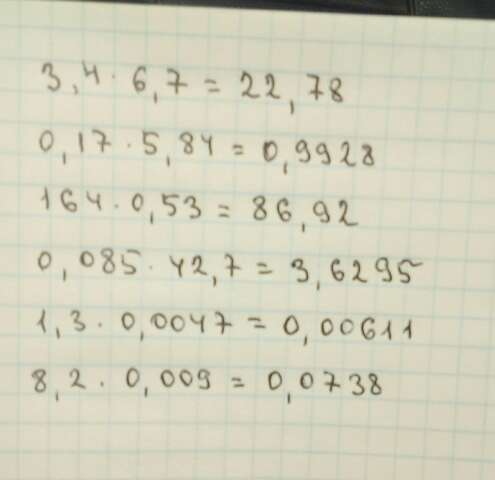 3,4 · 6,7 = 22,78
0,17 · 5,84 = 0,9928
164 · 0,53 = 86,92
0,085 · 42,7 = 3,6295
1,3 · 0,0047 = 0,00611
8,2 · 0,009 = 0,0738